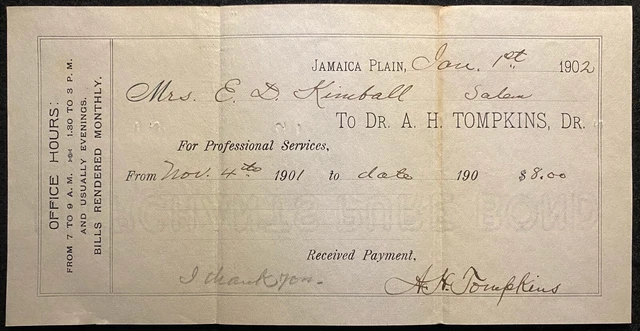 OFFICE HOURS:
FROM 7 TO 9 A.M. 1.30 TO 3 P.M.
AND USUALLY EVENINGS.
BILLS RENDERED MONTHLY.
JAMAICA PLAIN, Jan. 1st 1902
Mrs. E. D. Kimball Salem
TO DR. A. H. TOMPKINS, DR.
For Professional Services,
From Nov. 4th 1901 to date 190 $8.00
Received Payment,
I thank you. A. H. Tompkins